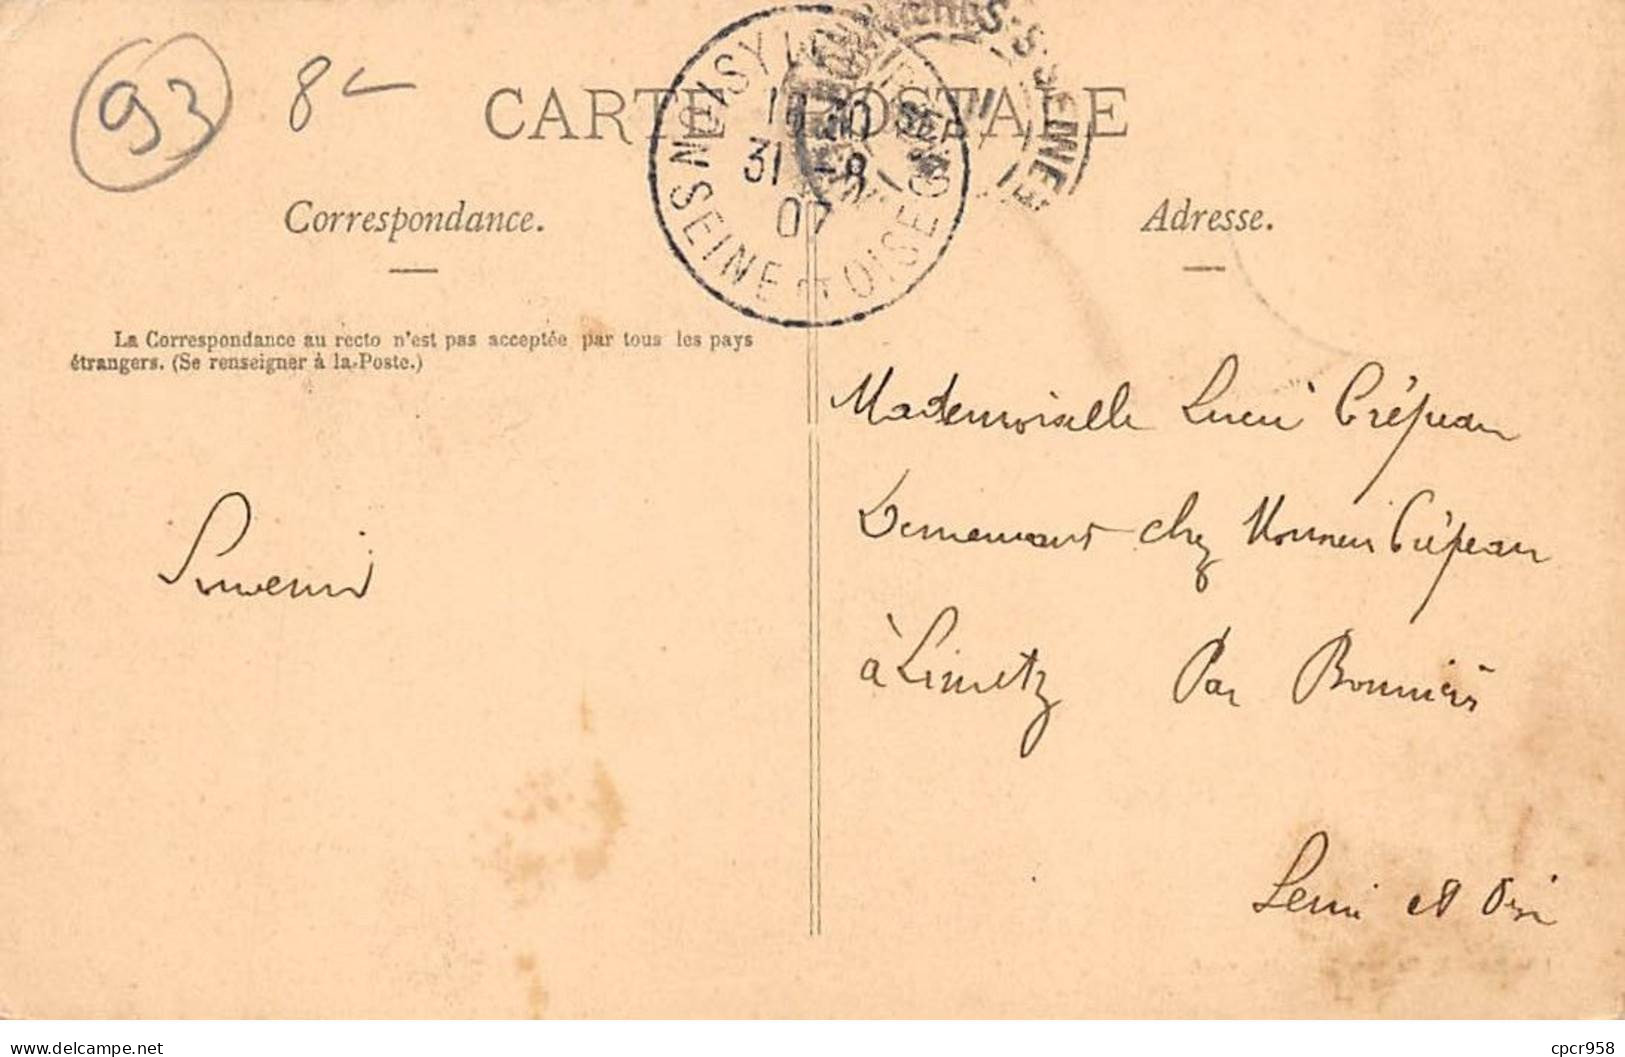 93
8
CARTE POSTALE
NOISY LE GRAND
16 30
31 - 8
07
SEINE ET OISE
S-SEINE
Correspondance.
Adresse.
La Correspondance au recto n'est pas acceptée par tous les pays
étrangers. (Se renseigner à la Poste.)
Souvenir
Mademoiselle Lucie Crépeau
Demeurant chez Monsieur Crépeau
à Limetz Par Bonnières
Seine et Oise
www.delcampe.net
cpcr958